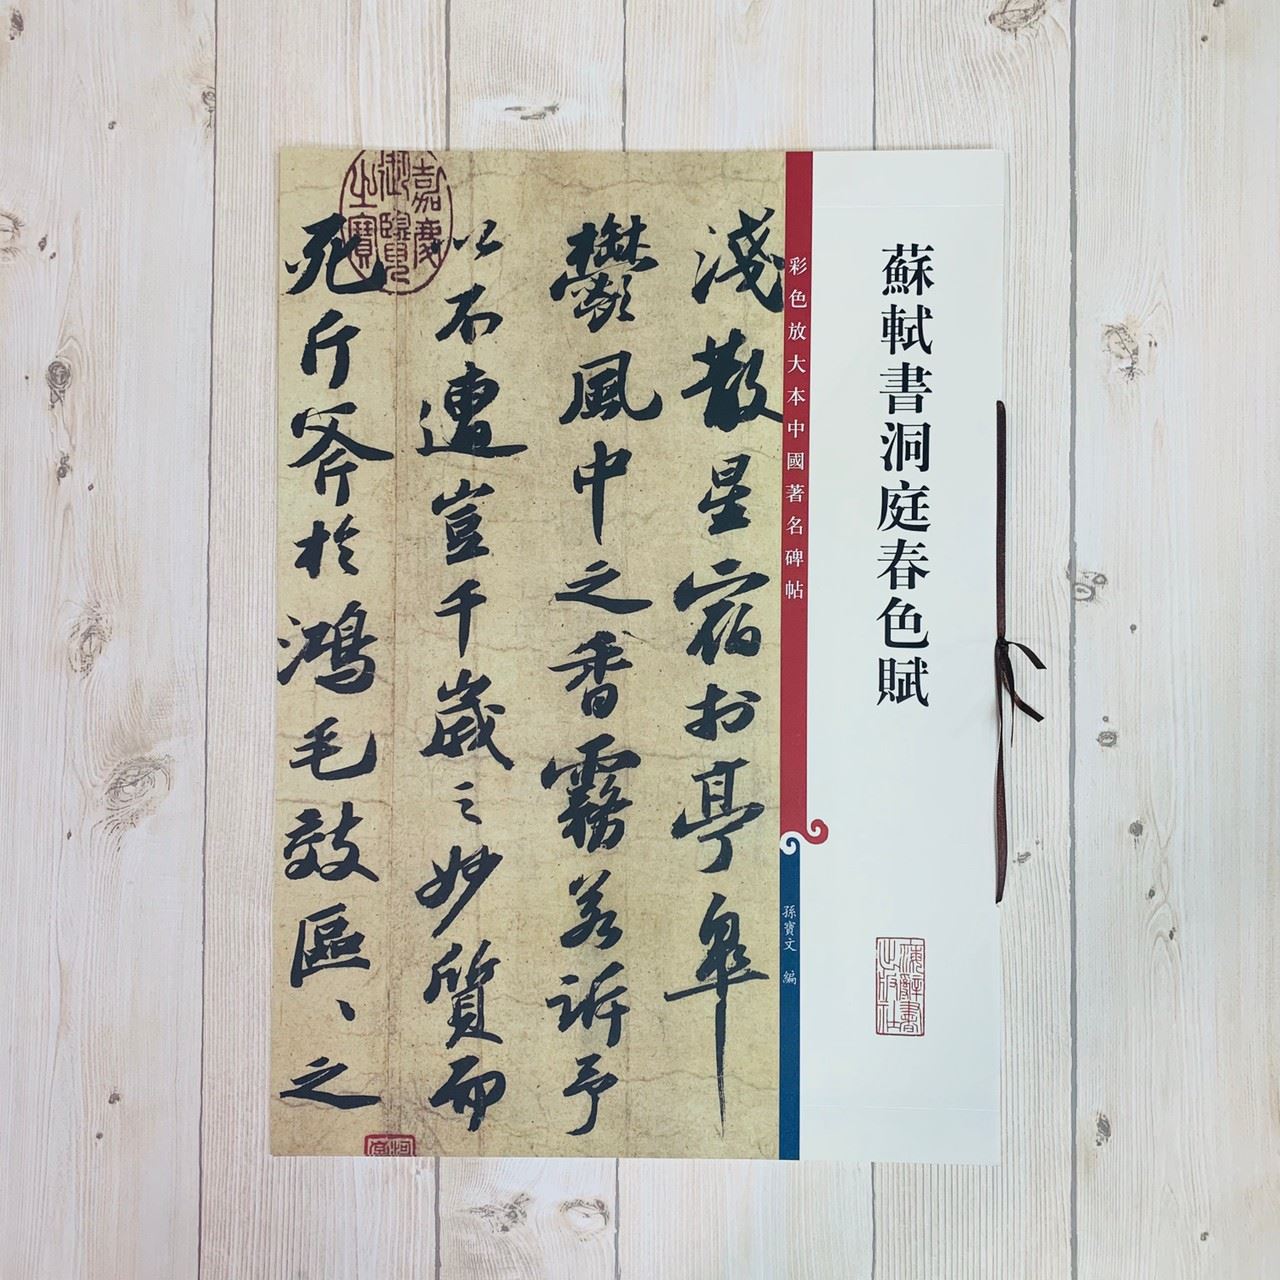 蘇軾書洞庭春色賦
海辭書出版社
彩色放大本中國著名碑帖
孫寶文 編
淺散星宿於亭皋
鬱風中之香霧若訴予
以不遭豈千歲之妙質而
死斤斧於鴻毛效區、之
嘉慶御覽之寶